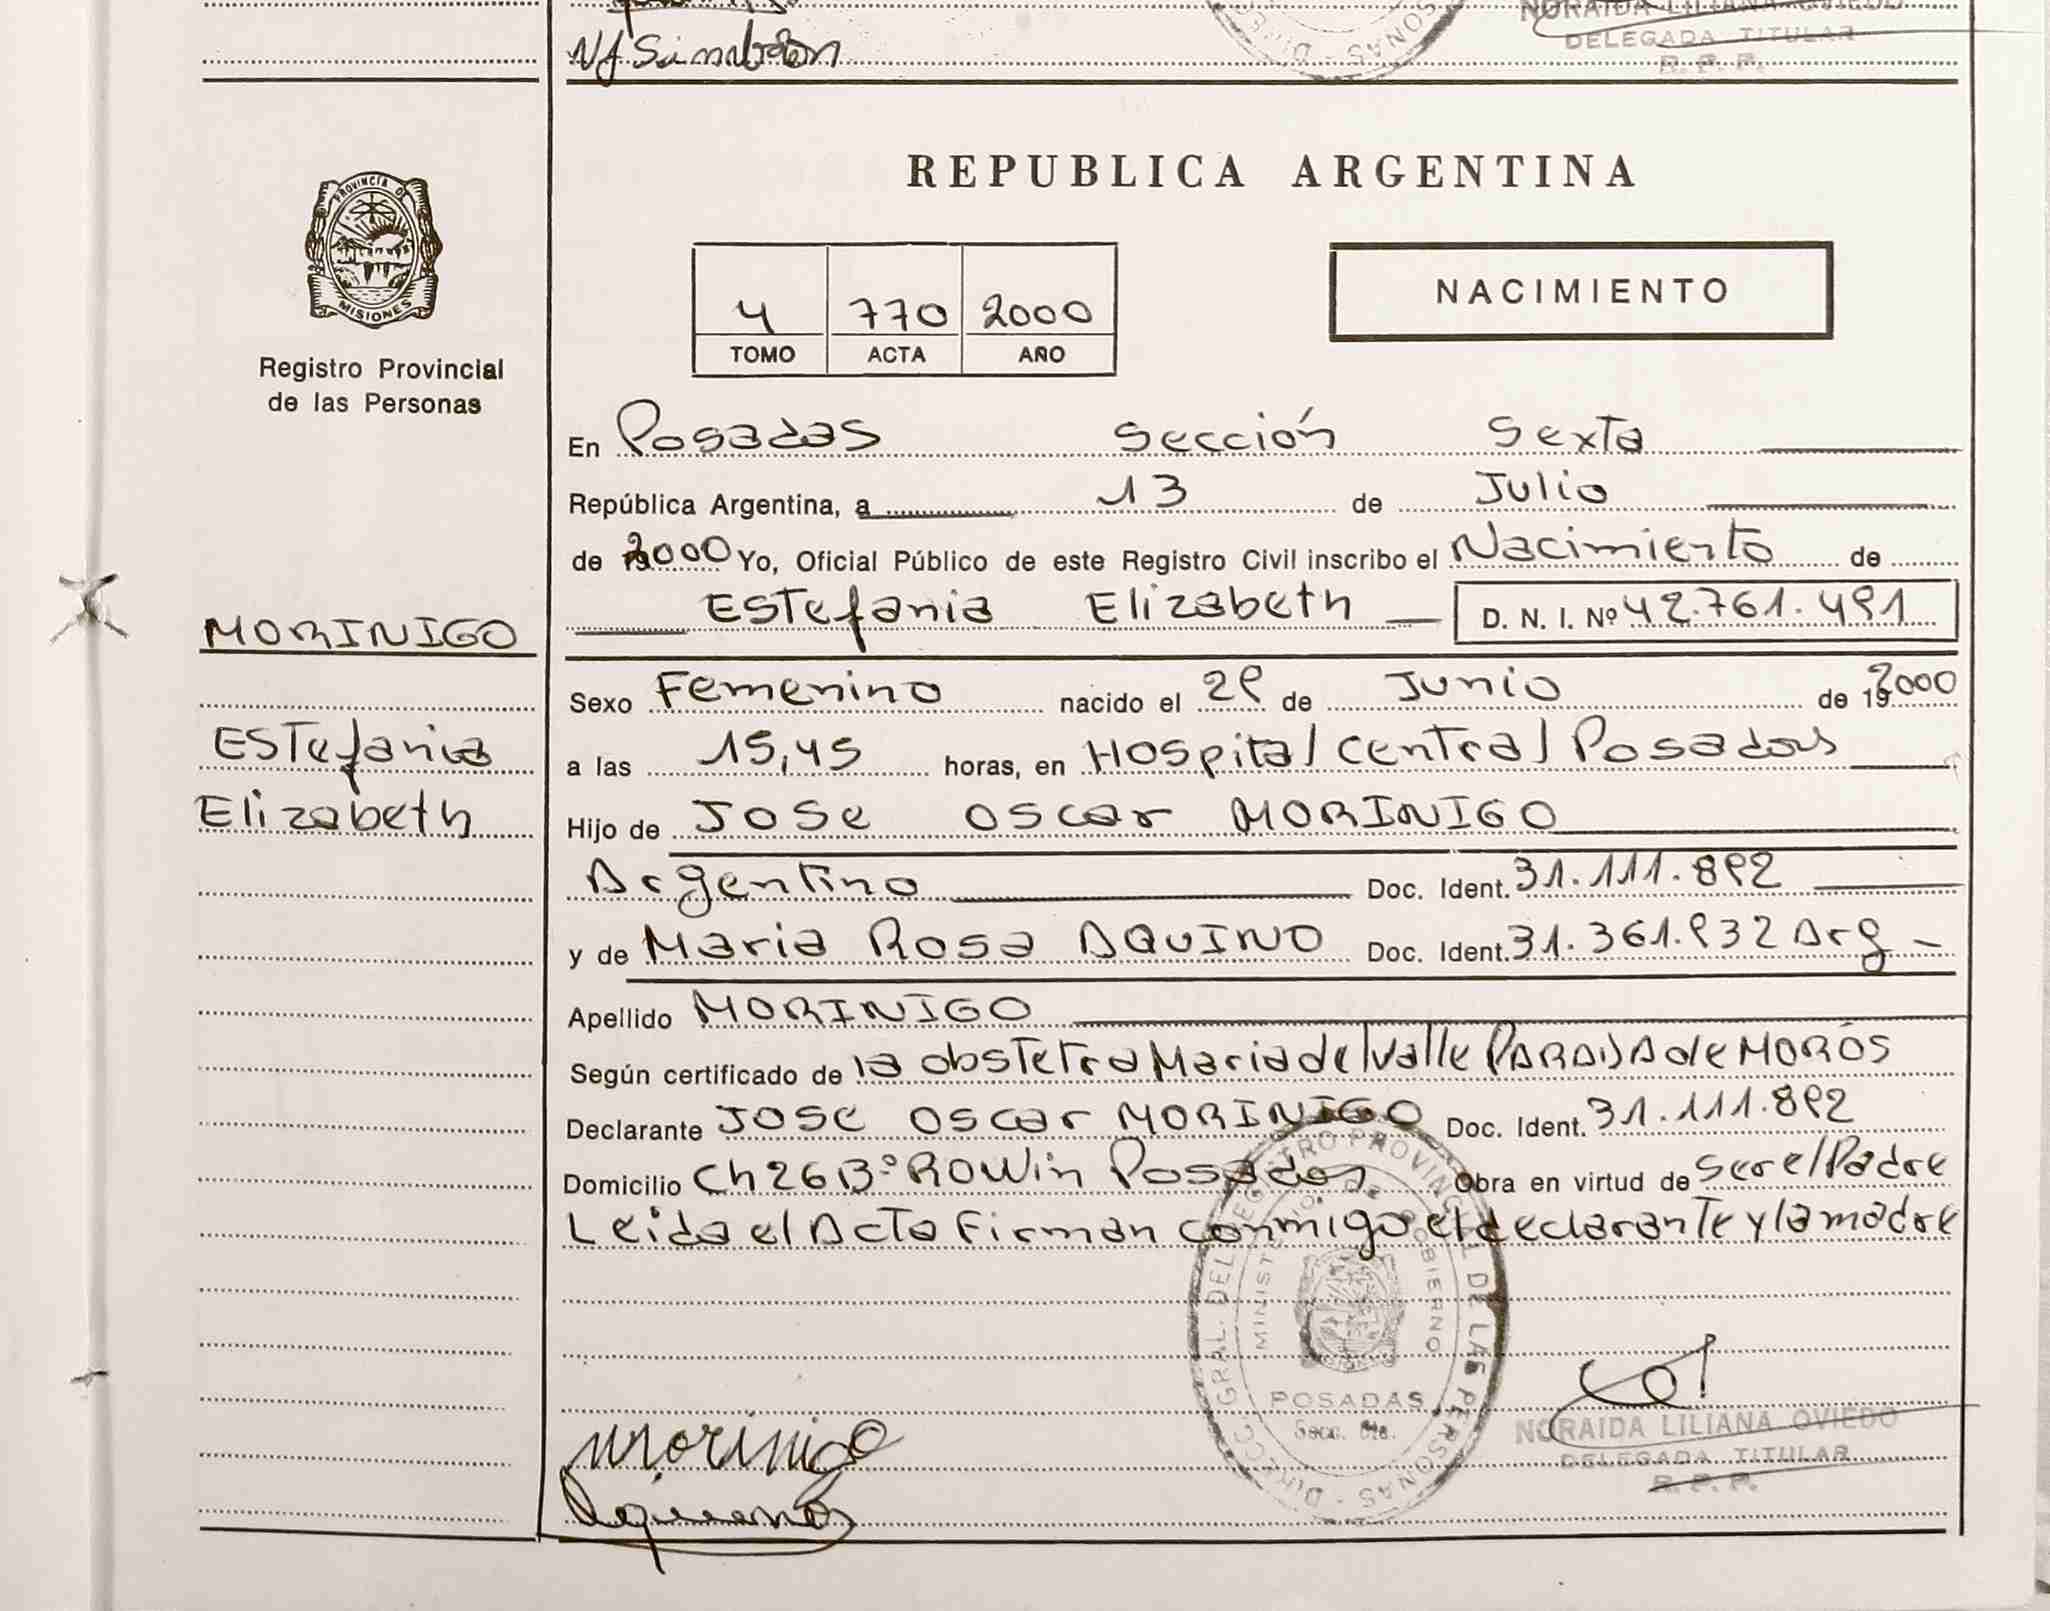 NORAIDA LILIANA OVIEDO
DELEGADA TITULAR
R. P. P.
PROVINCIA DE
MISIONES
Registro Provincial
de las Personas
MORINIGO
Estefania
Elizabeth
REPUBLICA ARGENTINA
4 770 2000
TOMO ACTA AÑO
NACIMIENTO
En Posadas Sección Sexta
República Argentina, a 13 de Julio
de 2000 Yo, Oficial Público de este Registro Civil inscribo el Nacimiento de
Estefania Elizabeth D. N. I. Nº 42.761.491
Sexo Femenino nacido el 29 de Junio de 19 2000
a las 15,45 horas, en Hospital Central Posadas
Hijo de Jose Oscar MORINIGO
Argentino Doc. Ident. 31.111.892
y de Maria Rosa AQUINO Doc. Ident. 31.361.932 Arg
Apellido MORINIGO
Según certificado de la obstetra Maria del Valle de MOROS
Declarante Jose Oscar MORINIGO Doc. Ident. 31.111.892
Domicilio Ch 26 Bº Rowin Posadas Obra en virtud de ser el Padre
Leida el Acta Firman conmigo el declarante y la madre
DIRECC. GRAL. DEL REGISTRO PROVINCIAL DE LAS PERSONAS
MINISTERIO DE GOBIERNO
POSADAS
Secc. 6ta.
Morinigo
NORAIDA LILIANA OVIEDO
DELEGADA TITULAR
R. P. P.